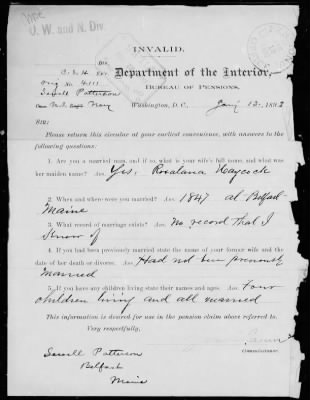 O. W. and N. Div.
INVALID.
Div.
Ex'r.
Orig No 4111
Sewell Patterson
U.S. Navy
Department of the Interior,
BUREAU OF PENSIONS,
Washington, D. C., Jany 12, 1898
SIR:
Please return this circular at your earliest convenience, with answers to the
following questions:
1. Are you a married man, and if so, what is your wife's full name, and what
was her maiden name? Ans. Yes. Rosalana Haycock
2. When and where were you married? Ans. 1847 at Belfast
Maine
3. What record of marriage exists? Ans. No record that I
Know of
4. If you had been previously married state the name of your former wife and the
date of her death or divorce. Ans. Had not been previously
married
5. If you have any children living state their names and ages. Ans. Four
children living and all married
This information is desired for use in the pension claim above referred to.
Very respectfully,
Commissioner.
Sewell Patterson
Belfast
Maine